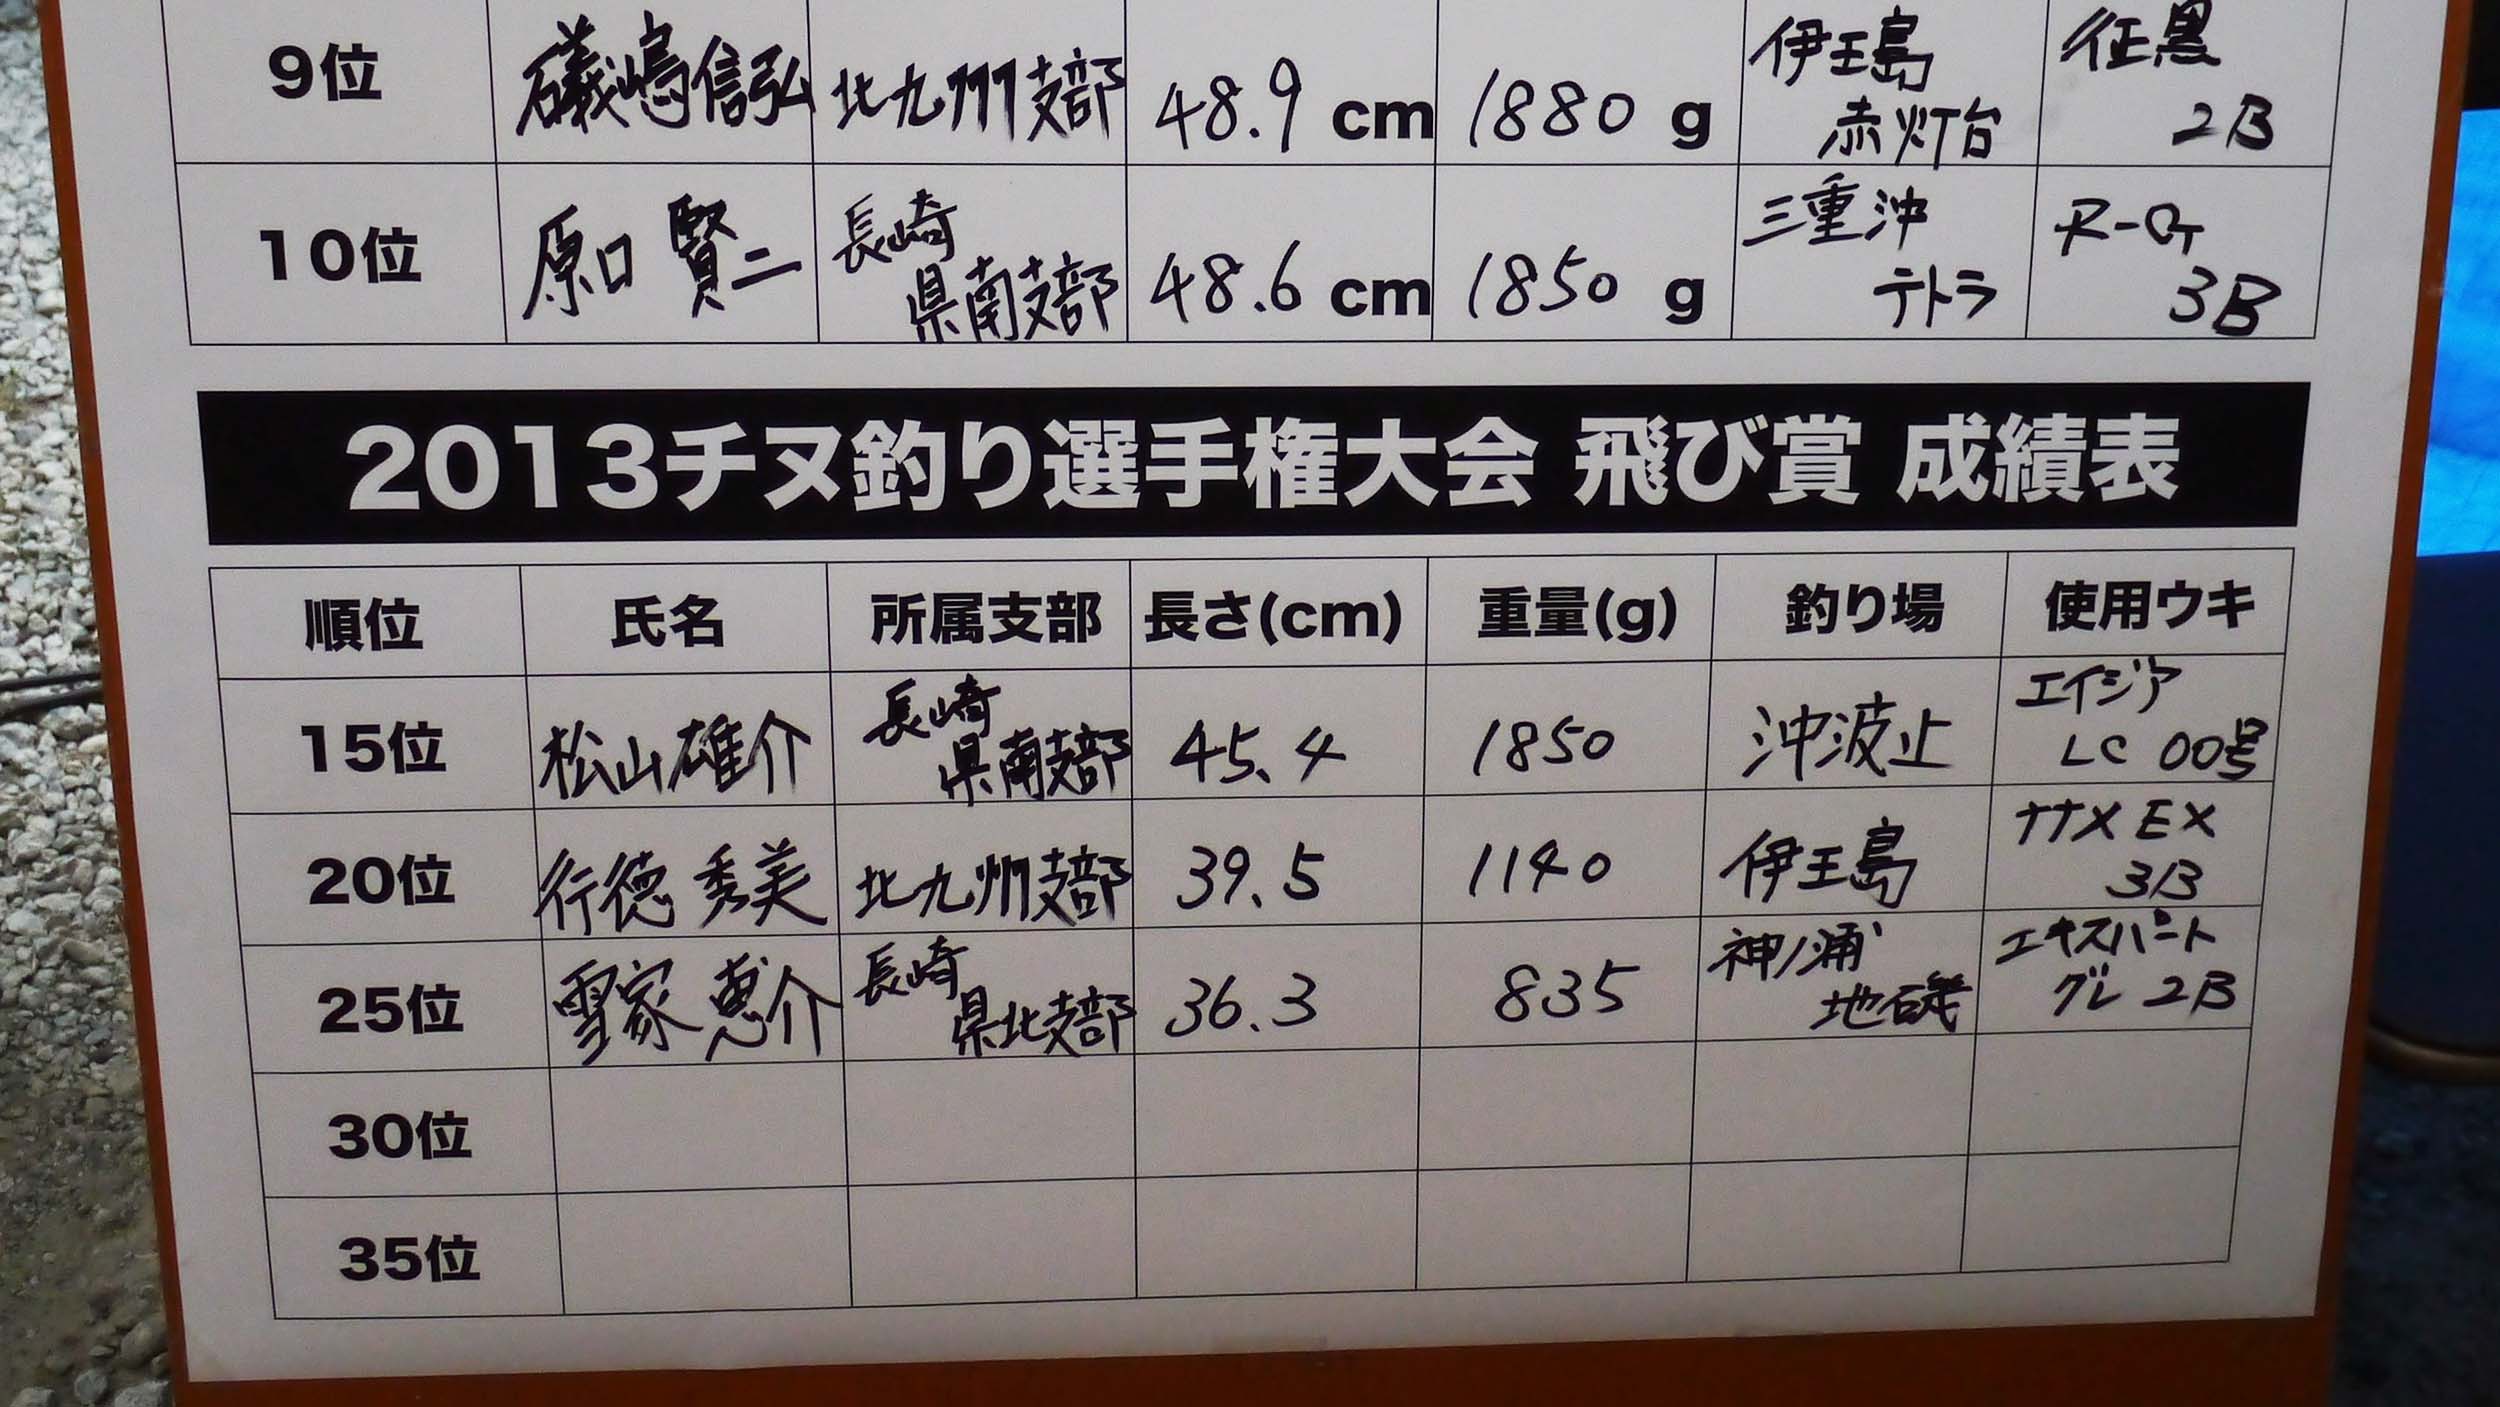 9位 礒嶋信弘 北九州支部 48.9 cm 1880 g 伊王島 赤灯台 征黒 2B
10位 原口賢二 長崎県南支部 48.6 cm 1850 g 三重沖 テトラ R-Gr 3B
2013チヌ釣り選手権大会 飛び賞 成績表
順位 氏名 所属支部 長さ(cm) 重量(g) 釣り場 使用ウキ
15位 松山雄介 長崎県南支部 45.4 1850 沖波止 エイジア LC 00号
20位 行徳秀美 北九州支部 39.5 1140 伊王島 ナナメEX 3B
25位 雪家恵介 長崎県北支部 36.3 835 神ノ浦 地磯 エキスパート グレ 2B
30位
35位